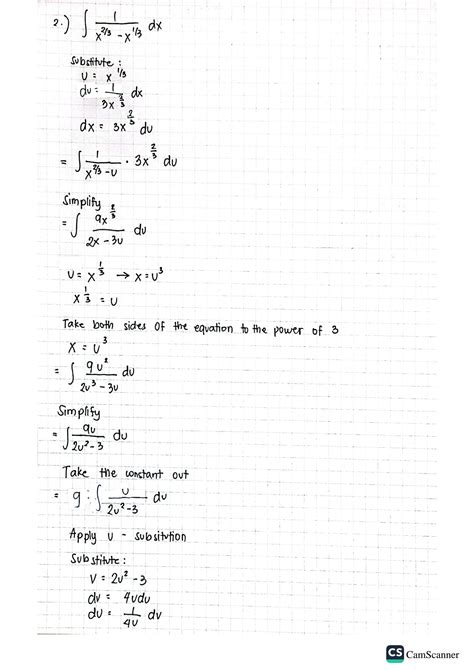 2.) ∫ 1/(x^{2/3} - x^{1/3}) dx
Substitute :
u = x^{1/3}
du = 1/(3x^{2/3}) dx
dx = 3x^{2/3} du
= ∫ 1/(x^{2/3} - u) · 3x^{2/3} du
Simplify
= ∫ 9x^{2/3}/(2x - 3u) du
u = x^{1/3} → x = u^3
x^{1/3} = u
Take both sides of the equation to the power of 3
x = u^3
= ∫ 9u^2/(2u^3 - 3u) du
Simplify
= ∫ 9u/(2u^2 - 3) du
Take the constant out
= 9 · ∫ u/(2u^2 - 3) du
Apply u - subsitution
Substitute :
v = 2u^2 - 3
dv = 4udu
du = 1/(4u) dv
CS CamScanner